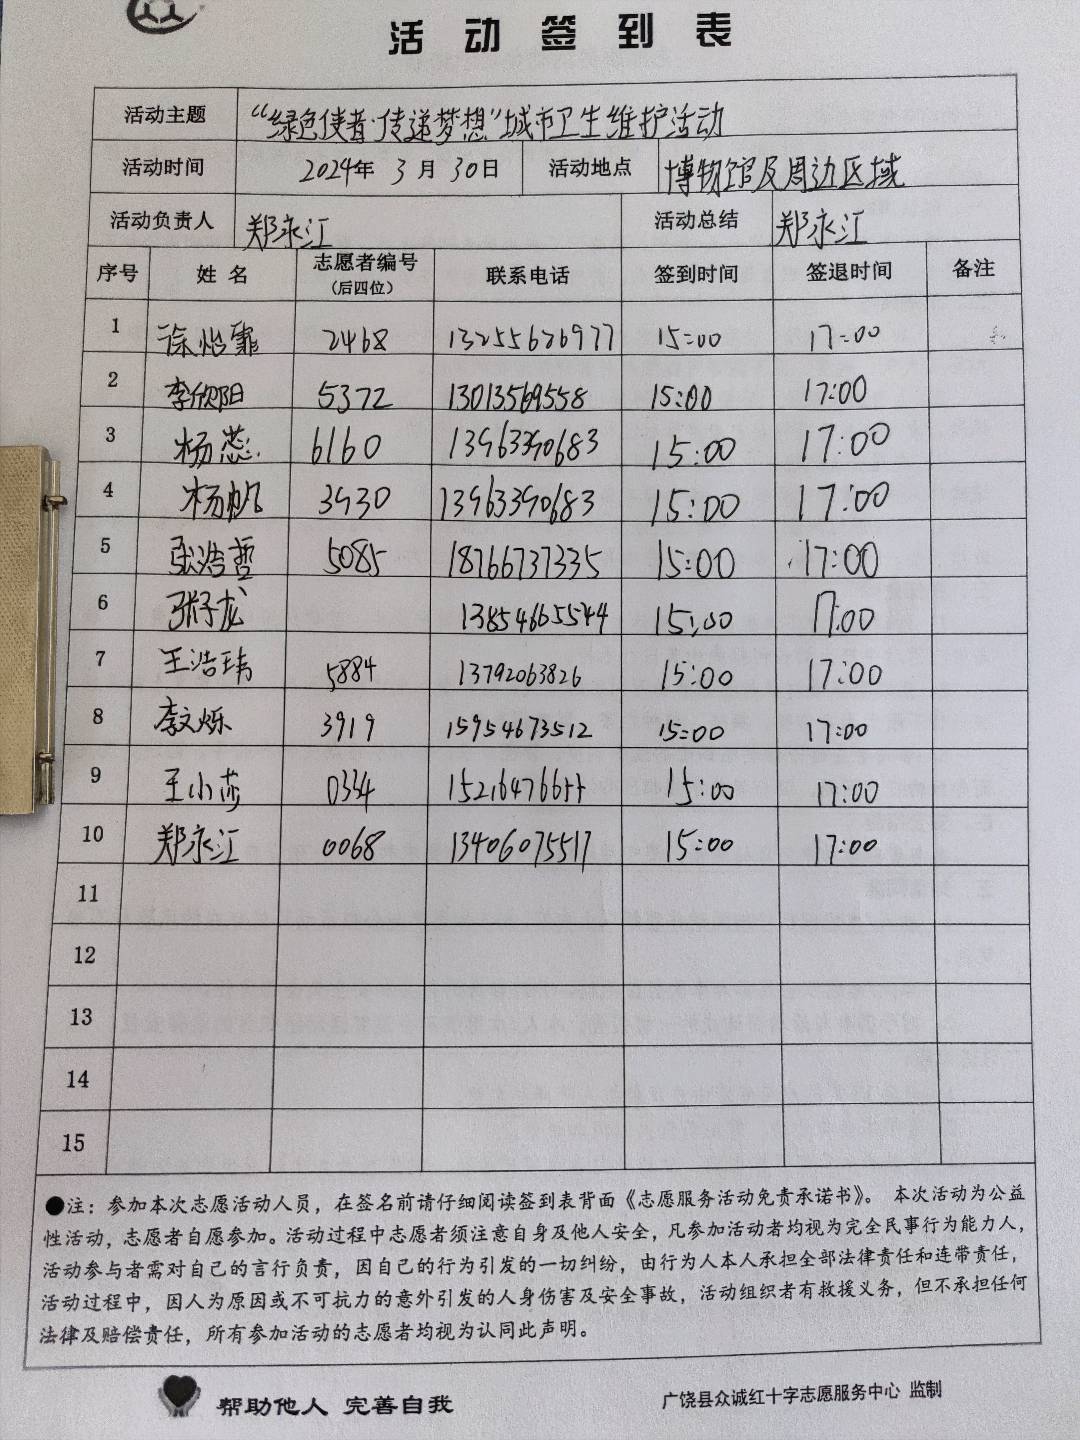 活动签到表
活动主题 “绿色使者·传递梦想”城市卫生维护活动
活动时间 2024年 3月 30日 活动地点 博物馆及周边区域
活动负责人 郑永江 活动总结 郑永江
序号 姓名 志愿者编号（后四位） 联系电话 签到时间 签退时间 备注
1 徐怡霏 2468 13255626977 15:00 17:00
2 李欣阳 5372 13013569558 15:00 17:00
3 杨蕊 6160 13963390683 15:00 17:00
4 杨帆 3930 13963390683 15:00 17:00
5 张浩哲 5085 18766737335 15:00 17:00
6 张子龙 13854665544 15:00 17:00
7 王浩玮 5884 13792063826 15:00 17:00
8 李文烁 3919 15954673512 15:00 17:00
9 王小莎 0334 15:00 17:00
10 郑永江 0068 13406075517 15:00 17:00
11
12
13
14
15
●注：参加本次志愿活动人员，在签名前请仔细阅读签到表背面《志愿服务活动免责承诺书》。 本次活动为公益
性活动，志愿者自愿参加。活动过程中志愿者须注意自身及他人安全，凡参加活动者均视为完全民事行为能力人，
活动参与者需对自己的言行负责，因自己的行为引发的一切纠纷，由行为人本人承担全部法律责任和连带责任，
活动过程中，因人为原因或不可抗力的意外引发的人身伤害及安全事故，活动组织者有救援义务，但不承担任何
法律及赔偿责任，所有参加活动的志愿者均视为认同此声明。
帮助他人 完善自我 广饶县众诚红十字志愿服务中心 监制